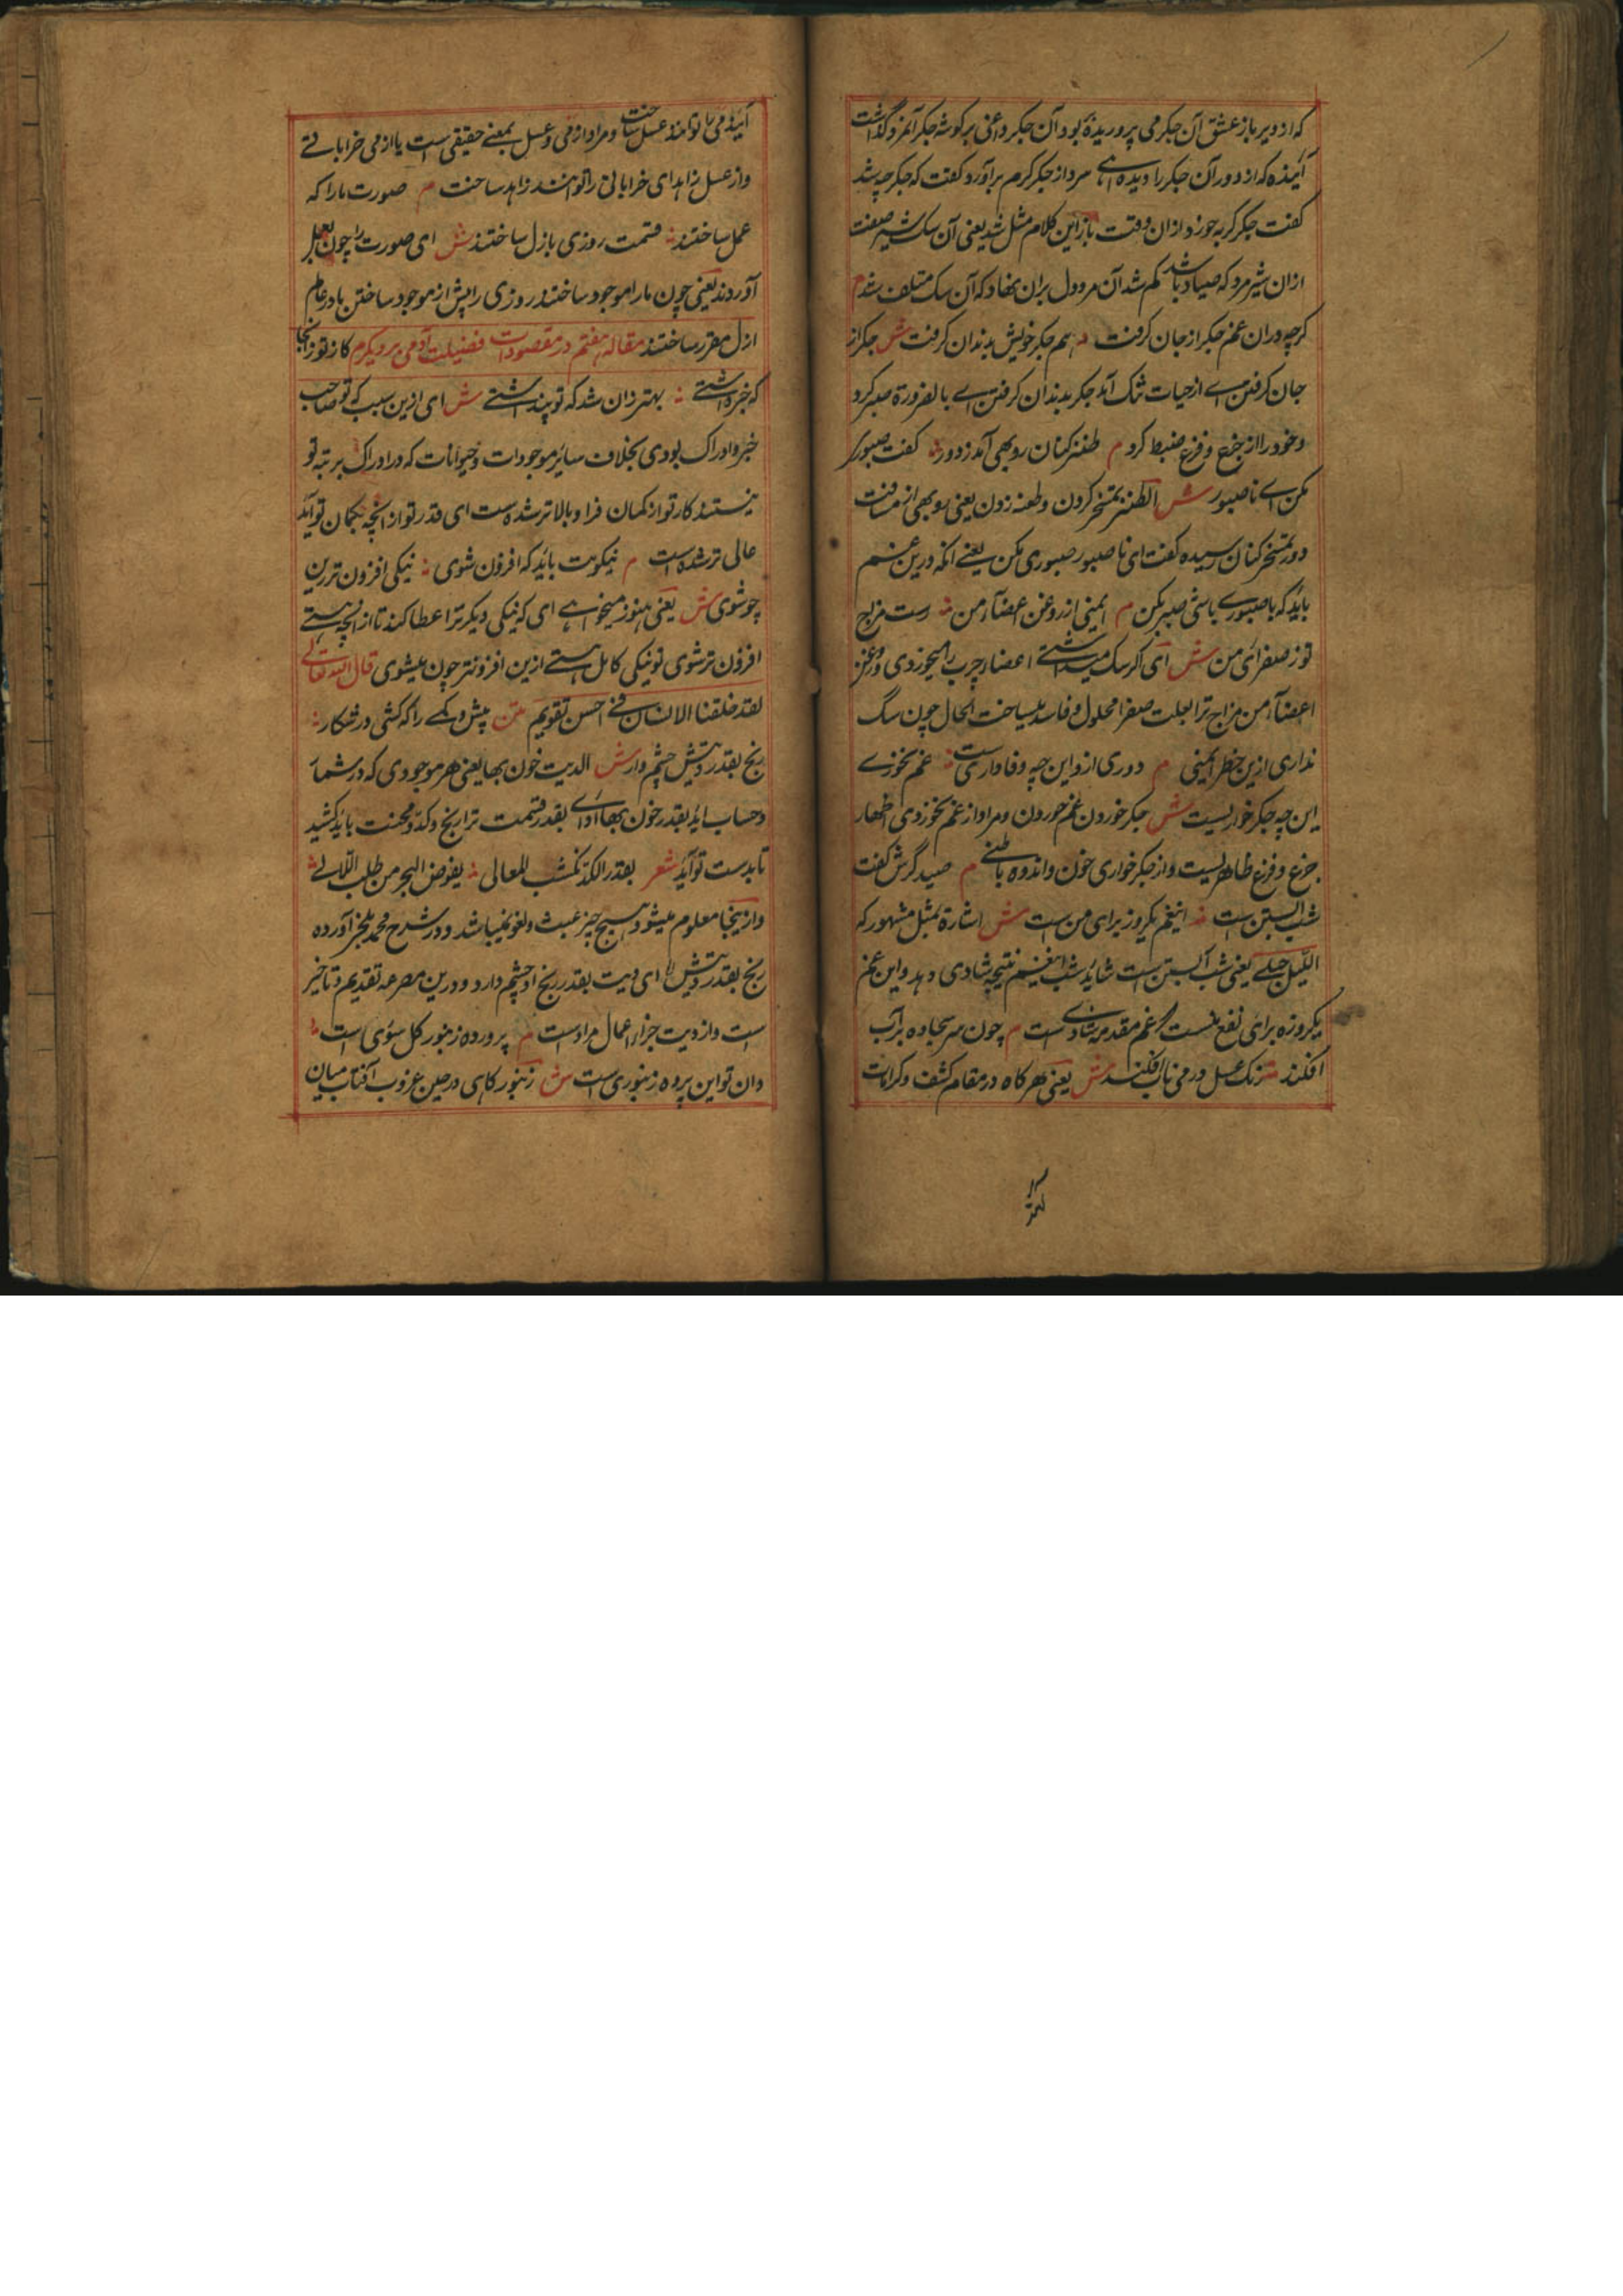 که از دیر باز عشق آن جگر می پروریده بود آن جگر داغی بر گوشه جگر آنمرد گذاشت
آینده که از دور آن جگر را دیده سرد از جگر گرم برآورد گفت که جگر چه شد
گفت جگر گربه خورد ازان وقت باز این کلام مثل شد یعنی آن سک شیر صفت
ازان شیر مرد که صیاد باشد گم شد آن مرد دل بران نهاد که آن سک متلف شد م
گرچه دران غم جگر از جان گرفت ؞ هم جگر خویش بدندان گرفت ش جگر از
جان گرفتن اے از حیات تنگ آمد جگر بدندان گرفتن اے بالضرورة صبر کرد
و خود را از جزع و فزع ضبط کرد م طنز کنان روبهی آمد ز دور ؞ گفت صبوری
مکن اے ناصبور ش الطنز تمسخر کردن و طعنه زدن یعنی روبهی از مسافت
دور تمسخر کنان رسیده گفت ای ناصبور صبوری مکن یعنے آنکه درین غم
باید که با صبوری باشی صبر مکن م ایمنی از روغن اعضاء من ؞ رست مزاج
تو ز صفرای من ش ای اگر سک میداشتے اعضاء چرب را میخوردی و روغن
اعضاء من مزاج ترا بعلت صفرا محلول و فاسد میساخت الحال چون سگ
نداری ازین خطر ایمنی م دوری ازو این چه وفاداری ست ؞ غم نخورے
این چه جگر خواریست ش جگر خوردن غم خوردن و مراد از غم نخوردی اظهار
جزع و فزع ظاهریست و از جگر خواری خون و اندوه باطنے م صید گرش گفت
شب آبستن ست ؞ اینغم یکروز برای من ست ش اشارة بمثل مشهور که
اللیل حبلے یعنی شب آبستن ست شاید شب اینغم نتیجه شادی دهد و این غم
یکروزه برای نفع منست که غم مقدمه شادی ست م چون سر سجاده بر آب
افکند ؞ رنگ عسل در می ناب افکند ش یعنی هرگاه در مقام کشف و کرامات
آیند می را توانند عسل ساخت و مراد از می و عسل بمعنے حقیقی است یا از می خراباتے
و از عسل زاهد ای خراباتی را توانند زاهد ساخت م صورت ما را که
عمل ساختند ؞ قسمت روزی بازل ساختند ش ای صورت را چون بعمل
آوردند یعنی چون ما را موجود ساختند روزی را پیش از موجود ساختن ما در عالم
ازل مقرر ساختند مقاله هفتم در مقصودات فضیلت آدمی بر دیگرم کار تو زانجا
که خبر داشتے ؞ بهتر زان شد که تو پنداشتے ش ای ازین سبب که تو صاحب
خبر و ادراک بودی بخلاف سایر موجودات و حیوانات که در ادراک بر تبه تو
نیستند کار تو از گمان فرا و بالاتر شده ست ای قدر تو از آنچه بگمان تو آید
عالی تر شده است م نیکویت باید که افزون شوی ؞ نیکی افزون تر ازین
چو شوی ش یعنی هنوز میخواهے ای که نیکی دیگر ترا عطا کند تا از آنچه هستے
افزون تر شوی تو نیکی کامل هستے ازین افزونتر چون میشوی قال الله تعالی
لقد خلقنا الانسان فے احسن تقویم متن پیش و کمے را که کشی در شکار ؞
رنج بقدر دیتش چشم دار ش الدیت خون بها یعنی هر موجودی که در شمار
و حساب آید بقدر خون بها او اے بقدر قسمت ترا رنج و کد و محنت باید کشید
تا بدست تو آید شعر بقدر الکد تکتسب المعالی ؞ یغوص البحر من طلب اللآلے
و ازینجا معلوم میشود هیچ چیز عبث و لغو نمیباشد و در شرح محمد بلخی آورده
رنج بقدر دیتش ای دیت بقدر رنج او چشم دارد و درین مصرعه تقدیم و تاخیر
ست و از دیت جزاء اعمال مراد ست م پرورده زنبور گل سوئی است ؞
وان تو این پرده زنبوری ست ش زنبور گاهی در حین غروب آفتاب میان